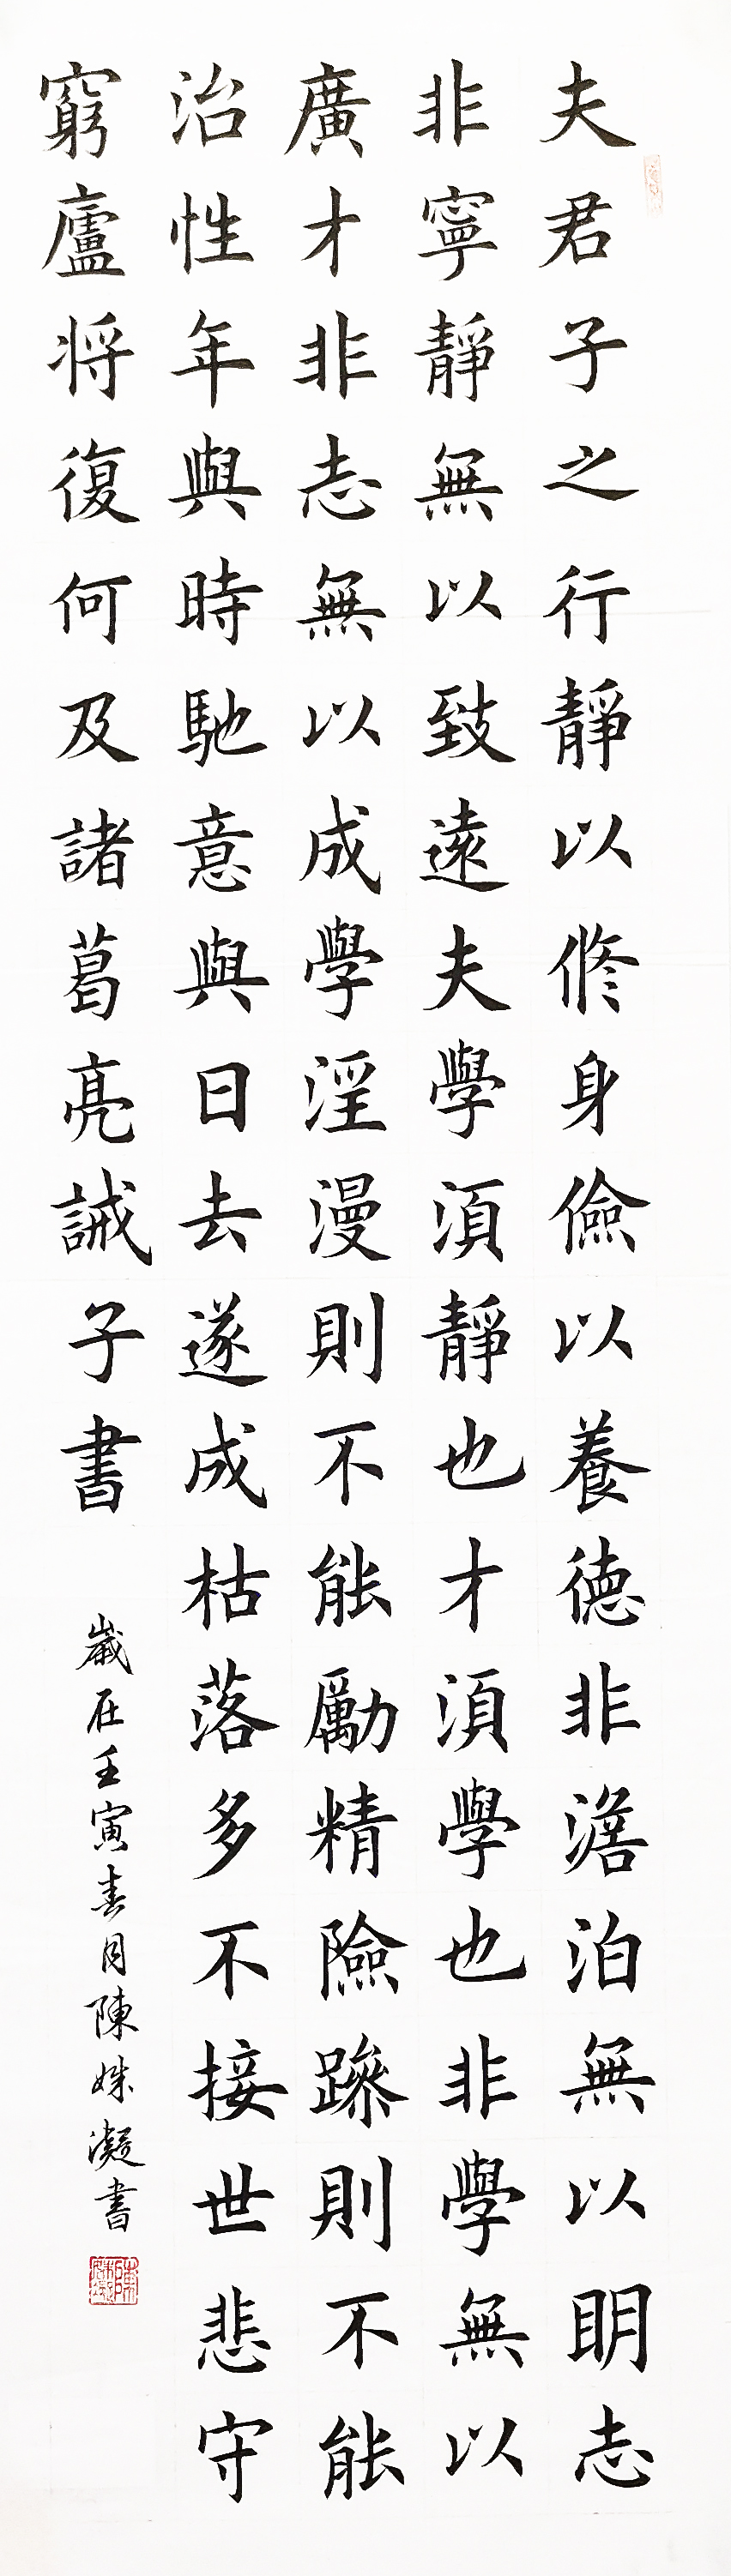 夫君子之行靜以修身儉以養德非澹泊無以明志
非寧靜無以致遠夫學須靜也才須學也非學無以
廣才非志無以成學淫漫則不能勵精險躁則不能
治性年與時馳意與日去遂成枯落多不接世悲守
窮廬將復何及諸葛亮誡子書
歲在壬寅春月陳姝凝書